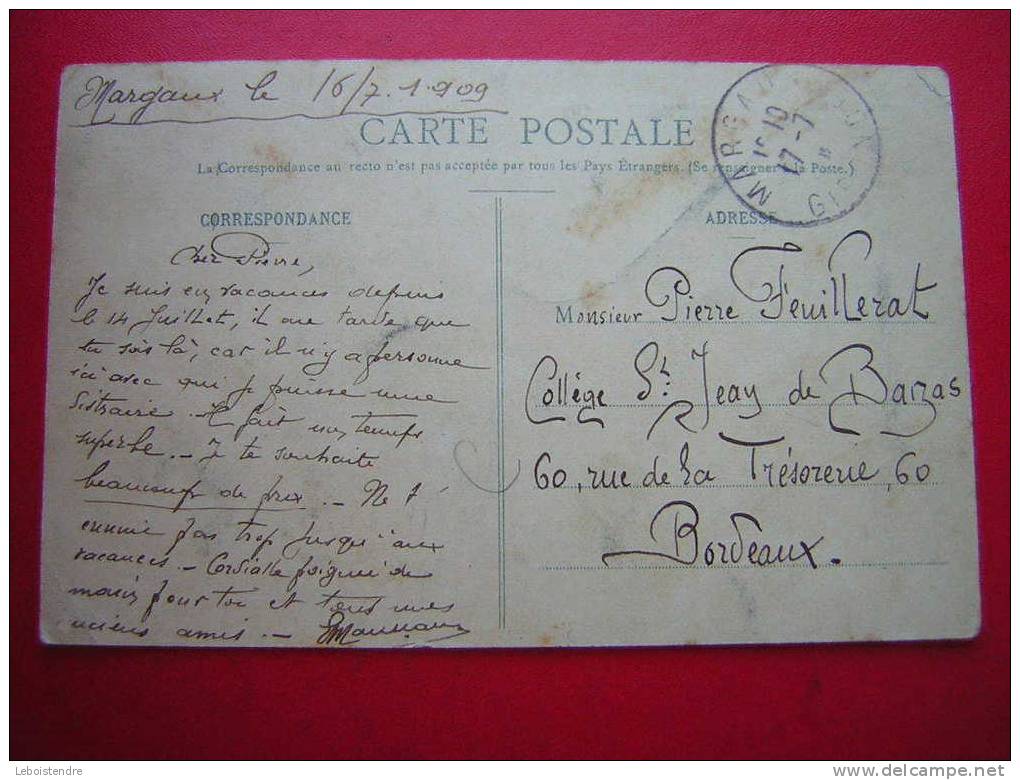 Margaux le 16/7 1909
CARTE POSTALE
La Correspondance au recto n'est pas acceptée par tous les Pays Étrangers. (Se renseigner à la Poste.)
CORRESPONDANCE
Cher Pierre,
Je suis en vacances depuis
le 14 Juillet, il me tarde que
tu sois là, car il n'y a personne
ici avec qui je puisse me
distraire. Il fait un temps
superbe. – Je te souhaite
beaucoup de prix. – Ne t'
ennuie pas trop jusqu'aux
vacances. – Cordialle poignée de
main pour toi et tous mes
anciens amis. –
ADRESSE
Monsieur Pierre Feuillerat
Collège St Jean de
60, rue de la Trésorerie, 60
Bordeaux.
MARGAUX
10 10
17-7
Leboistendre
delcampe.net